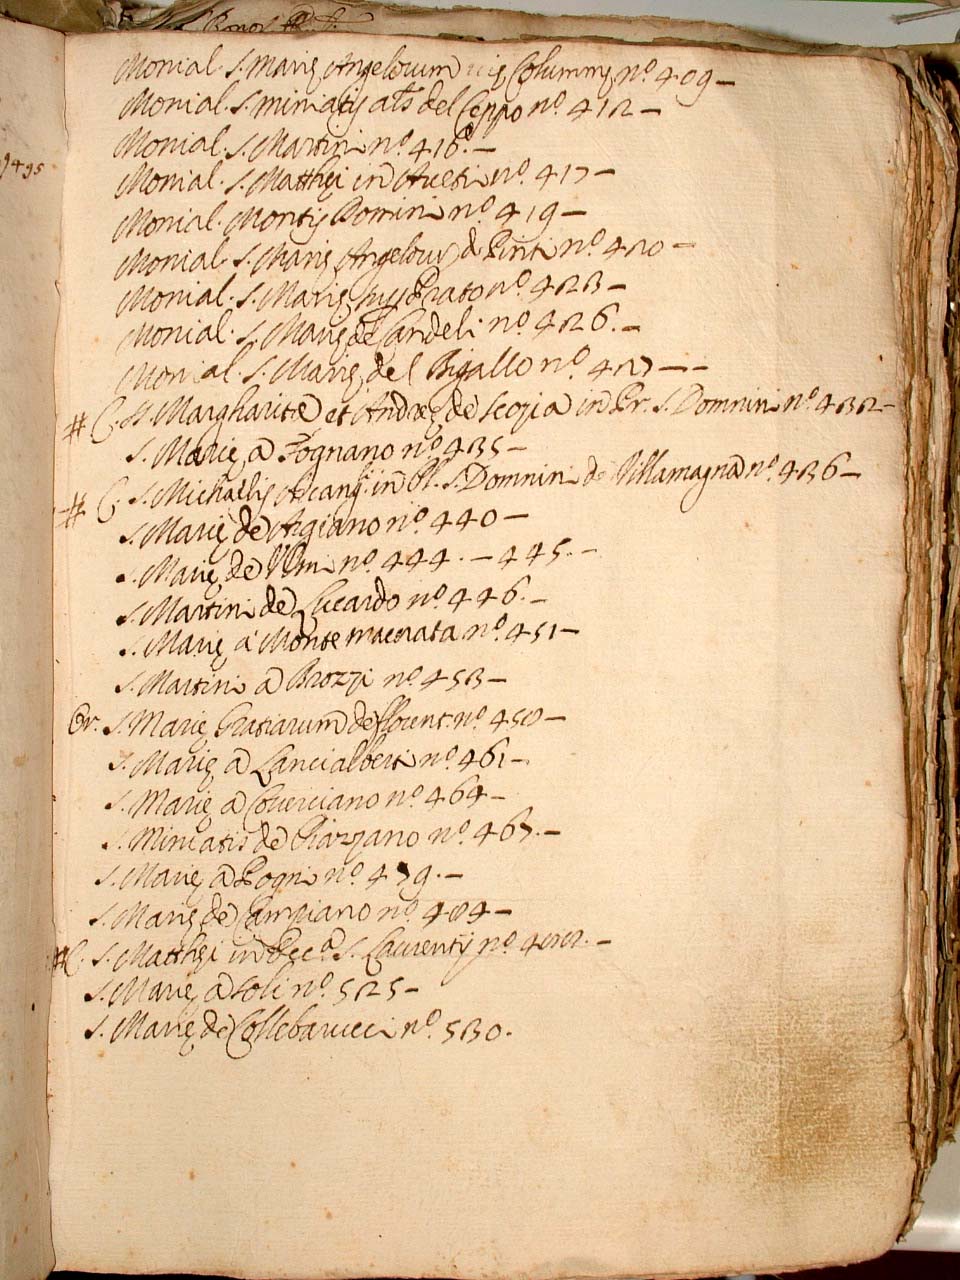 Monial. S. Marię Angelorum Columnę nº. 409 –
Monial. S. Miniatis als del Ceppo nº. 412 –
Monial. S. Martini nº. 416. –
Monial. S. Matthęi in nº. 417 –
Monial. Montis Domini nº. 419 –
Monial. S. Marię Angelour de Pinti nº. 420 –
Monial. S. Marię sus Prato nº. 423 –
Monial. S. Marię de Candeli nº. 426. –
Monial. S. Marię del Bigallo nº. 427 – –
# C. SS. Margharitæ et Andreę de in Pr. S. Domnini nº. 432 –
S. Marię a Fognano nº. 435 –
# C. S. Michaelis Arcang: in Pl. S. Domnini de Villamagna nº. 436 –
S. Marię de Argiano nº. 440 –
S. Marię de nº. 444. – 445. –
S. Martini de Lucardo nº. 446. –
S. Marię a Monte macerata nº. 451 –
S. Martini a Brozzi nº. 453 –
Or. S. Marię Gratiarum de Florent. nº. 458 –
S. Marię a Lancialberti nº. 461 –
S. Marię a Coverciano nº. 464 –
S. Miniatis de nº. 467. –
S. Marię a Pogni nº. 479. –
S. Marię de Campiano nº. 484 –
# C. S. Matthęi in S. Laurentij nº.
S. Marię a Soli nº. 525 –
S. Marię de Collebarucci nº. 530.